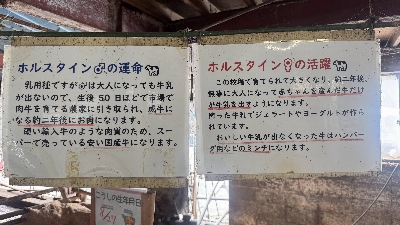 ホルスタイン♂の運命
乳用種ですが♂は大人になっても牛乳
が出ないので、生後50日ほどで市場で
肉牛を育てる農家に引き取られ、成牛に
なる約二年後にお肉になります。
硬い輸入牛のような肉質のため、スー
パーで売っている安い国産牛になります。
ホルスタイン♀の活躍
この牧場で育てられて大きくなり、約二年後、
無事に大人になって赤ちゃんを産んだ牛だけ
が牛乳を出すようになります。
搾った牛乳でジェラートやヨーグルトが作ら
れています。
おいしい牛乳が出なくなった牛はハンバー
グ用などのミンチになります。
こうしの生年月日